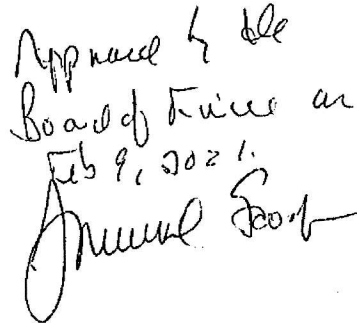 Approved by the
Board of Finance on
Feb 9, 2021.